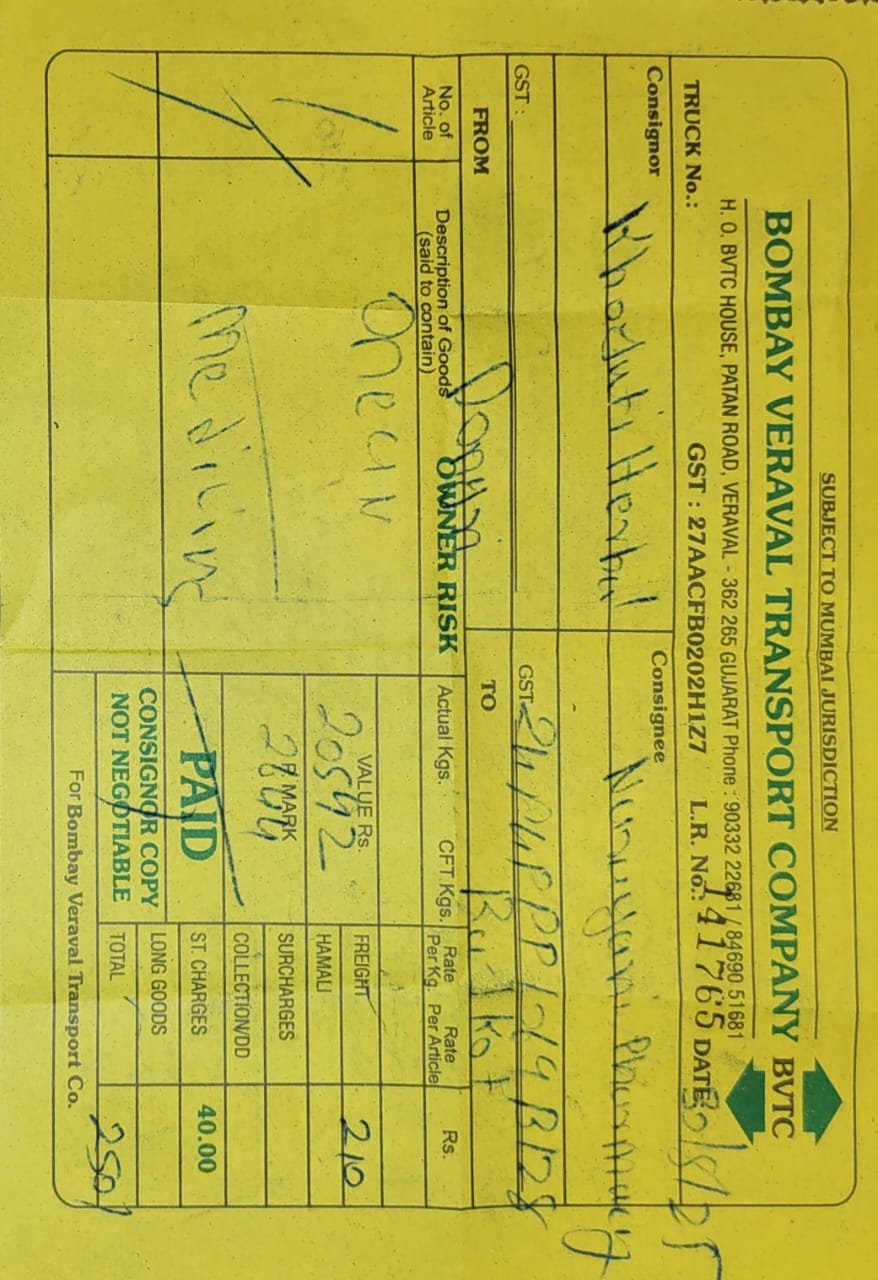 SUBJECT TO MUMBAI JURISDICTION
BOMBAY VERAVAL TRANSPORT COMPANY BVTC
H. O. BVTC HOUSE, PATAN ROAD, VERAVAL - 362 265 GUJARAT Phone : 90332 22681 / 84690 51681
TRUCK No.: GST : 27AACFB0202H1Z7 L.R. No.: 141765 DATE 30/8/25
Consignor Consignee
Herbal Pharmacy
GST : GST
FROM TO Rajkot
No. of Article Description of Goods (said to contain) OWNER RISK Actual Kgs. CFT Kgs. Rate Per Kg. Rate Per Article Rs.
One C/N
VALUE Rs. 20592 FREIGHT 210
HAMALI
P MARK 2844 SURCHARGES
COLLECTION/DD
medicine PAID ST. CHARGES 40.00
CONSIGNOR COPY LONG GOODS
NOT NEGOTIABLE TOTAL 250/
For Bombay Veraval Transport Co.